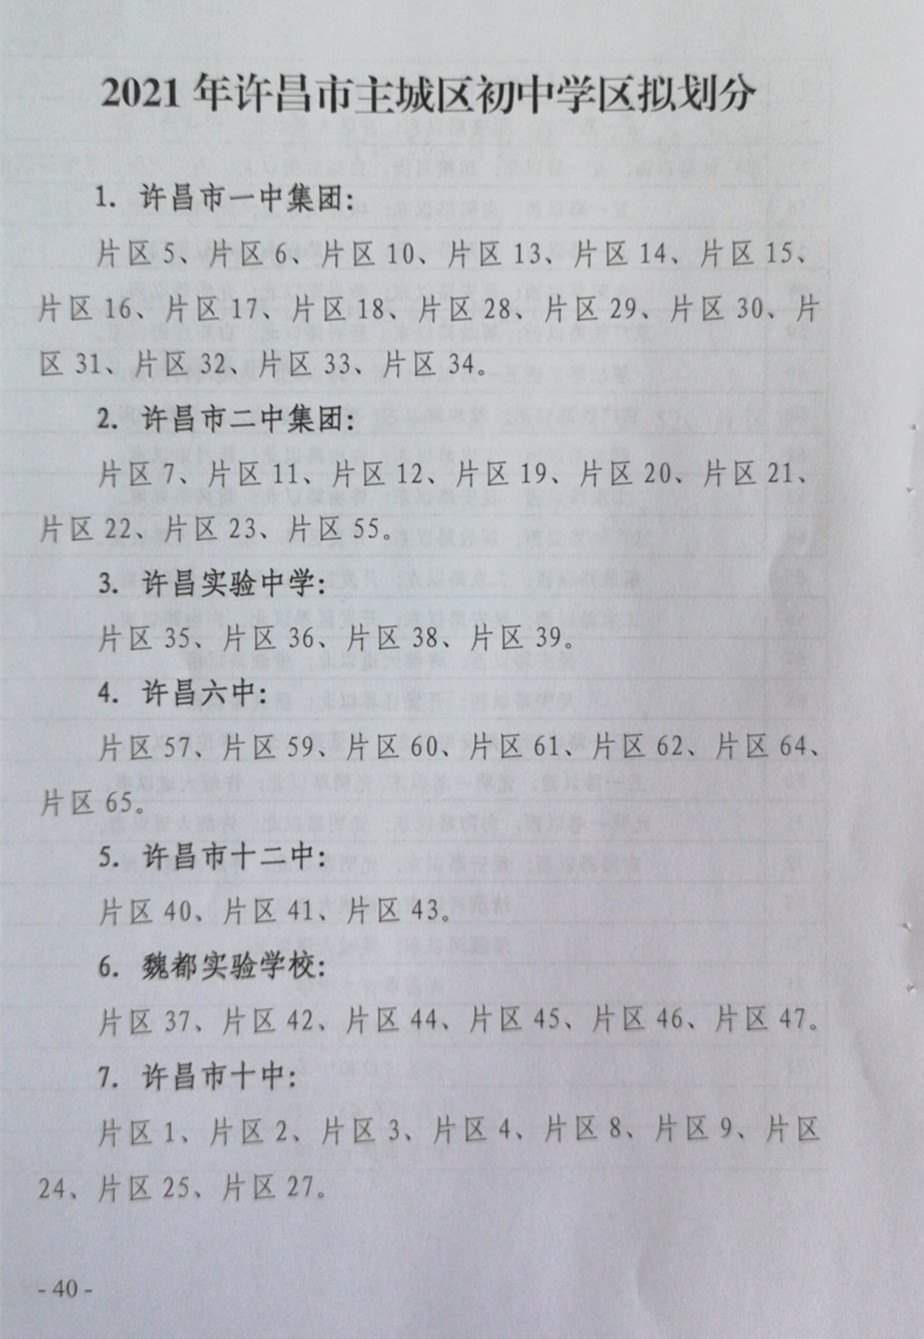 2021 年许昌市主城区初中学区拟划分
1. 许昌市一中集团:
片区 5、片区 6、片区 10、片区 13、片区 14、片区 15、
片区 16、片区 17、片区 18、片区 28、片区 29、片区 30、片
区 31、片区 32、片区 33、片区 34。
2. 许昌市二中集团:
片区 7、片区 11、片区 12、片区 19、片区 20、片区 21、
片区 22、片区 23、片区 55。
3. 许昌实验中学:
片区 35、片区 36、片区 38、片区 39。
4. 许昌六中:
片区 57、片区 59、片区 60、片区 61、片区 62、片区 64、
片区 65。
5. 许昌市十二中:
片区 40、片区 41、片区 43。
6. 魏都实验学校:
片区 37、片区 42、片区 44、片区 45、片区 46、片区 47。
7. 许昌市十中:
片区 1、片区 2、片区 3、片区 4、片区 8、片区 9、片区
24、片区 25、片区 27。
- 40 -